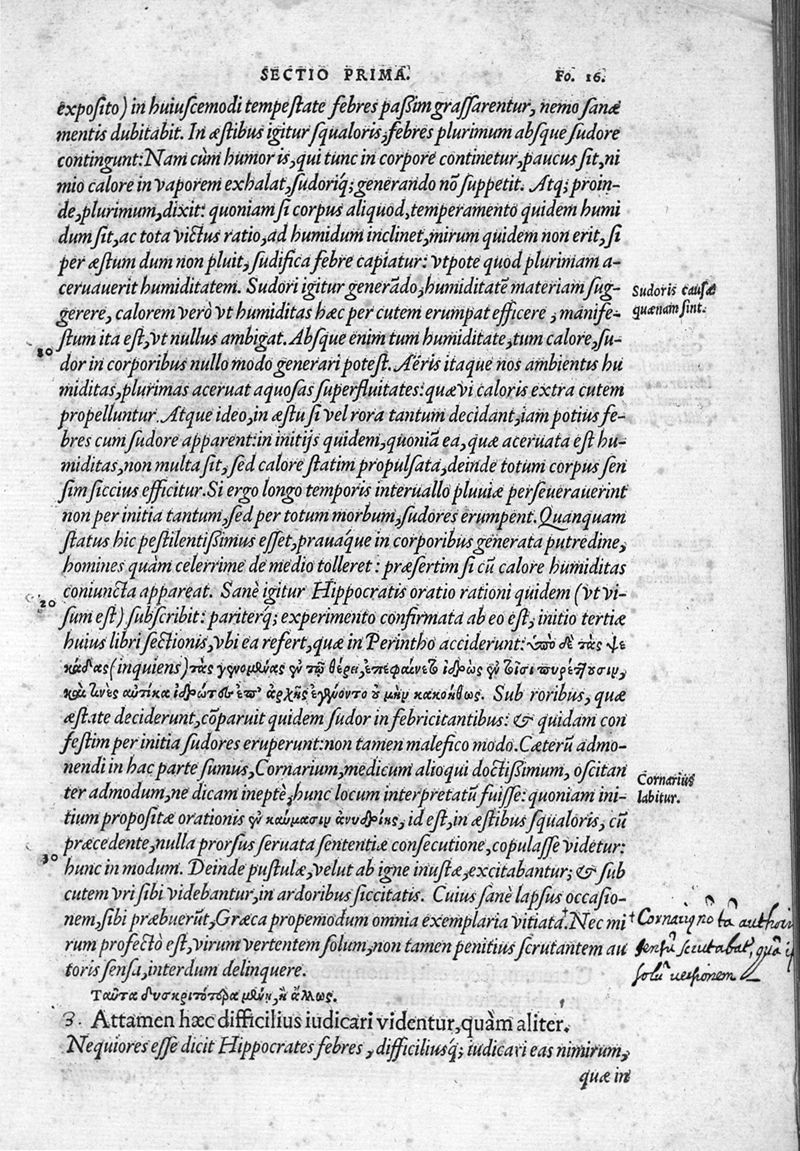 SECTIO PRIMA. Fo. 16.
expoſito) in huiuſcemodi tempeſtate febres paßim graſſarentur, nemo ſanæ
mentis dubitabit. In æſtibus igitur ſqualoris, febres plurimum abſque ſudore
contingunt: Nam cùm humor is, qui tunc in corpore continetur, paucus ſit, ni
mio calore in vaporem exhalat, ſudoriq́; generando nõ ſuppetit. Atq; proin-
de, plurimum, dixit: quoniam ſi corpus aliquod, temperamento quidem humi
dum ſit, ac tota victus ratio, ad humidum inclinet, mirum quidem non erit, ſi
per æſtum dum non pluit, ſudifica febre capiatur: vtpote quod plurimam a-
ceruauerit humiditatem. Sudori igitur generãdo, humiditatẽ materiam ſug-
gerere, calorem verò vt humiditas hæc per cutem erumpat efficere, manife-
ſtum ita eſt, vt nullus ambigat. Abſque enim tum humiditate, tum calore, ſu-
dor in corporibus nullo modo generari poteſt. Aëris itaque nos ambientis hu
miditas, plurimas aceruat aquoſas ſuperfluitates: quæ vi caloris extra cutem
propelluntur. Atque ideo, in æſtu ſi vel rora tantum decidant, iam potius fe-
bres cum ſudore apparent: in initijs quidem, quoniã ea, quæ aceruata eſt hu-
miditas, non multa ſit, ſed calore ſtatim propulſata, deinde totum corpus ſen
ſim ſiccius efficitur. Si ergo longo temporis interuallo pluuiæ perſeuerauerint
non per initia tantum, ſed per totum morbum, ſudores erumpent. Quanquam
ſtatus hic peſtilentißimus eſſet, prauaque in corporibus generata putredine,
homines quàm celerrime de medio tolleret: præſertim ſi cũ calore humiditas
coniuncta appareat. Sanè igitur Hippocratis oratio rationi quidem (vt vi-
ſum eſt) ſubſcribit: pariterq́; experimento confirmata ab eo eſt, initio tertiæ
huius libri ſectionis, vbi ea refert, quæ in Perintho acciderunt: ὑπὸ δὲ τὰς ψε
κάδας (inquiens) τὰς γινομένας ἐν τῷ θέρει, ἐπεφαίνετο ἱδρὼς ἐν τοῖσι πυρετοῖσιν,
καὶ τινες αὐτίκα ἱδρῶτες ἐπ' ἀρχῆς ἐγίνοντο οὐ μὴν κακοήθως. Sub roribus, quæ
æſtate deciderunt, cõparuit quidem ſudor in febricitantibus: & quidam con
feſtim per initia ſudores eruperunt: non tamen malefico modo. Cæterũ admo-
nendi in hac parte ſumus, Cornarium, medicum alioqui doctißimum, oſcitan
ter admodum, ne dicam ineptè, hunc locum interpretatũ fuiſſe: quoniam ini-
tium propoſitæ orationis ἐν καύμασιν ἀνυδρίης, id eſt, in æſtibus ſqualoris, cũ
præcedente, nulla prorſus ſeruata ſententiæ conſecutione, copulaſſe videtur:
hunc in modum. Deinde puſtulæ, velut ab igne inuſtæ, excitabantur; & ſub
cutem vri ſibi videbantur, in ardoribus ſiccitatis. Cuius ſanè lapſus occaſio-
nem, ſibi præbuerũt, Græca propemodum omnia exemplaria vitiata. Nec mi
rum profectò eſt, virum vertentem ſolum, non tamen penitius ſcrutantem au
toris ſenſa, interdum delinquere.
Ταῦτα δυσκριτότερα μὲν, ἢ ἄλλως.
3. Attamen hæc difficilius iudicari videntur, quàm aliter.
Nequiores eſſe dicit Hippocrates febres, difficiliusq́; iudicari eas nimirum,
quæ in
Sudoris cauſæ
quænam ſint.
10
20
Cornarius
labitur.
30
Cornariꝰ nõ tã authori
ſenſũ ſcrutabat, quã
ſolũ verſionem